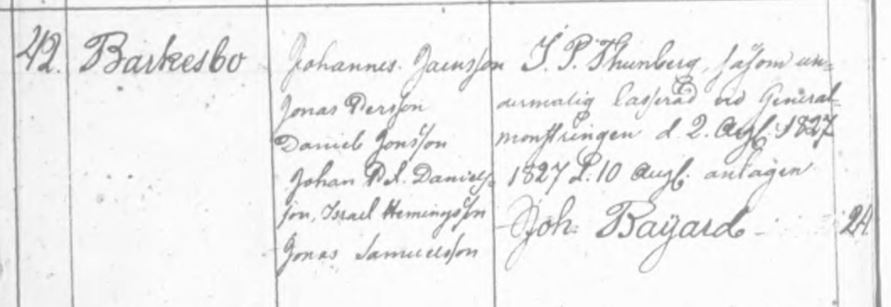 42. Barkesbo
Johannes Jaensson
Jonas Persson
Daniel Jonsson
Johan P.
Daniels-
son, Israel Hemingsson
Jonas Samuelsson
J. P. Thunberg, såsom
casserad vid General-
mönstringen d. 2. Augl. 1827
1827 d. 10 Augl. antagen
Joh. Bayard
24